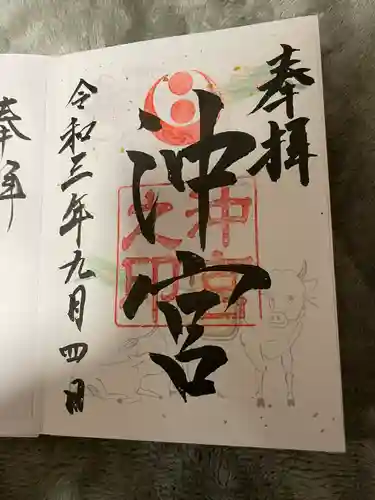 奉拝
沖宮
沖宮之印
令和三年九月四日
奉拝